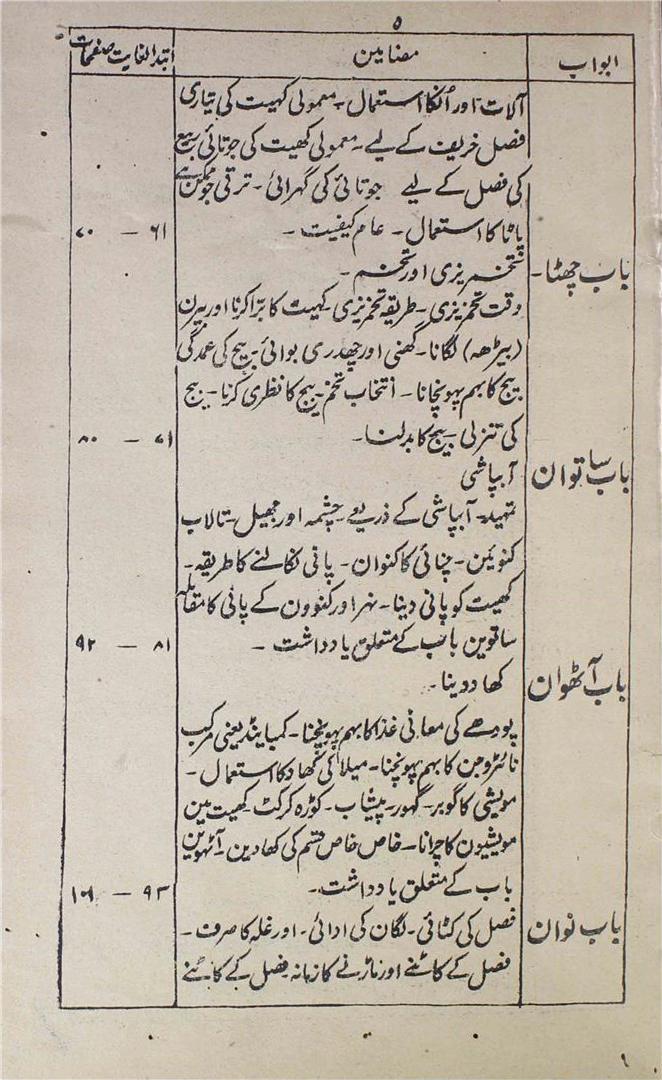 ۵
ابواب مضامین ابتدا لغایت صفحات
آلات اور اُنکا استعمال۔ معمولی کہیت کی تیاری
فصل خریف کے لیے۔ معمولی کھیت کی جوتائی ربیع
کی فصل کے لیے جوتائی کی گہرائی۔ ترقی جو ممکن ہے
پاٹا کا استعمال۔ عام کیفیت۔ ۶۱ – ۷۰
باب چھٹا۔ تخمریزی اور تخم۔
وقت تخمریزی۔ طریقہ تخمریزی۔ کہیت کا برّا کرنا اور بیرن
(بیڑھہ) لگانا۔ گھنی اور چھدری بوائی۔ بیج کی عمدگی
بیج کا بہم پہونچانا۔ انتخاب تخم۔ بیج کا نظری کرنا۔ بیج
کی تنزلی۔ بیج کا بدلنا۔ ۷۱ – ۸۰
باب ساتوان آبپاشی
تمہید۔ آبپاشی کے ذریعے چشمہ اور جھیل۔ تالاب
کنوئین۔ چنائی کا کنوان۔ پانی نکالنے کا طریقہ۔
کھیت کو پانی دینا۔ نہر اور کنوون کے پانی کا مقابلہ
ساتوین باب کے متعلق یادداشت۔ ۸۱ – ۹۲
باب آٹھوان کھاد دینا۔
پودھے کی معدانی غذا کا بہم پہونچنا۔ کمپاینڈ یعنی مرکب
نائٹروجن کا بہم پہونچنا۔ میلا کی کھاد کا استعمال۔
مویشی کا گوبر۔ گہور۔ پیشاب۔ کوڑہ کرکٹ۔ کھیت مین
مویشیون کا چرانا۔ خاص خاص قسم کی کھادین۔ آٹہوین
باب کے متعلق یادداشت۔ ۹۳ – ۱۰۹
باب نوان فصل کی کٹائی۔ لگان کی ادائی۔ اور غلہ کا صرف۔
فصل کے کاٹنے اور ماڑنے کا زمانہ۔ فصل کے کاٹنے